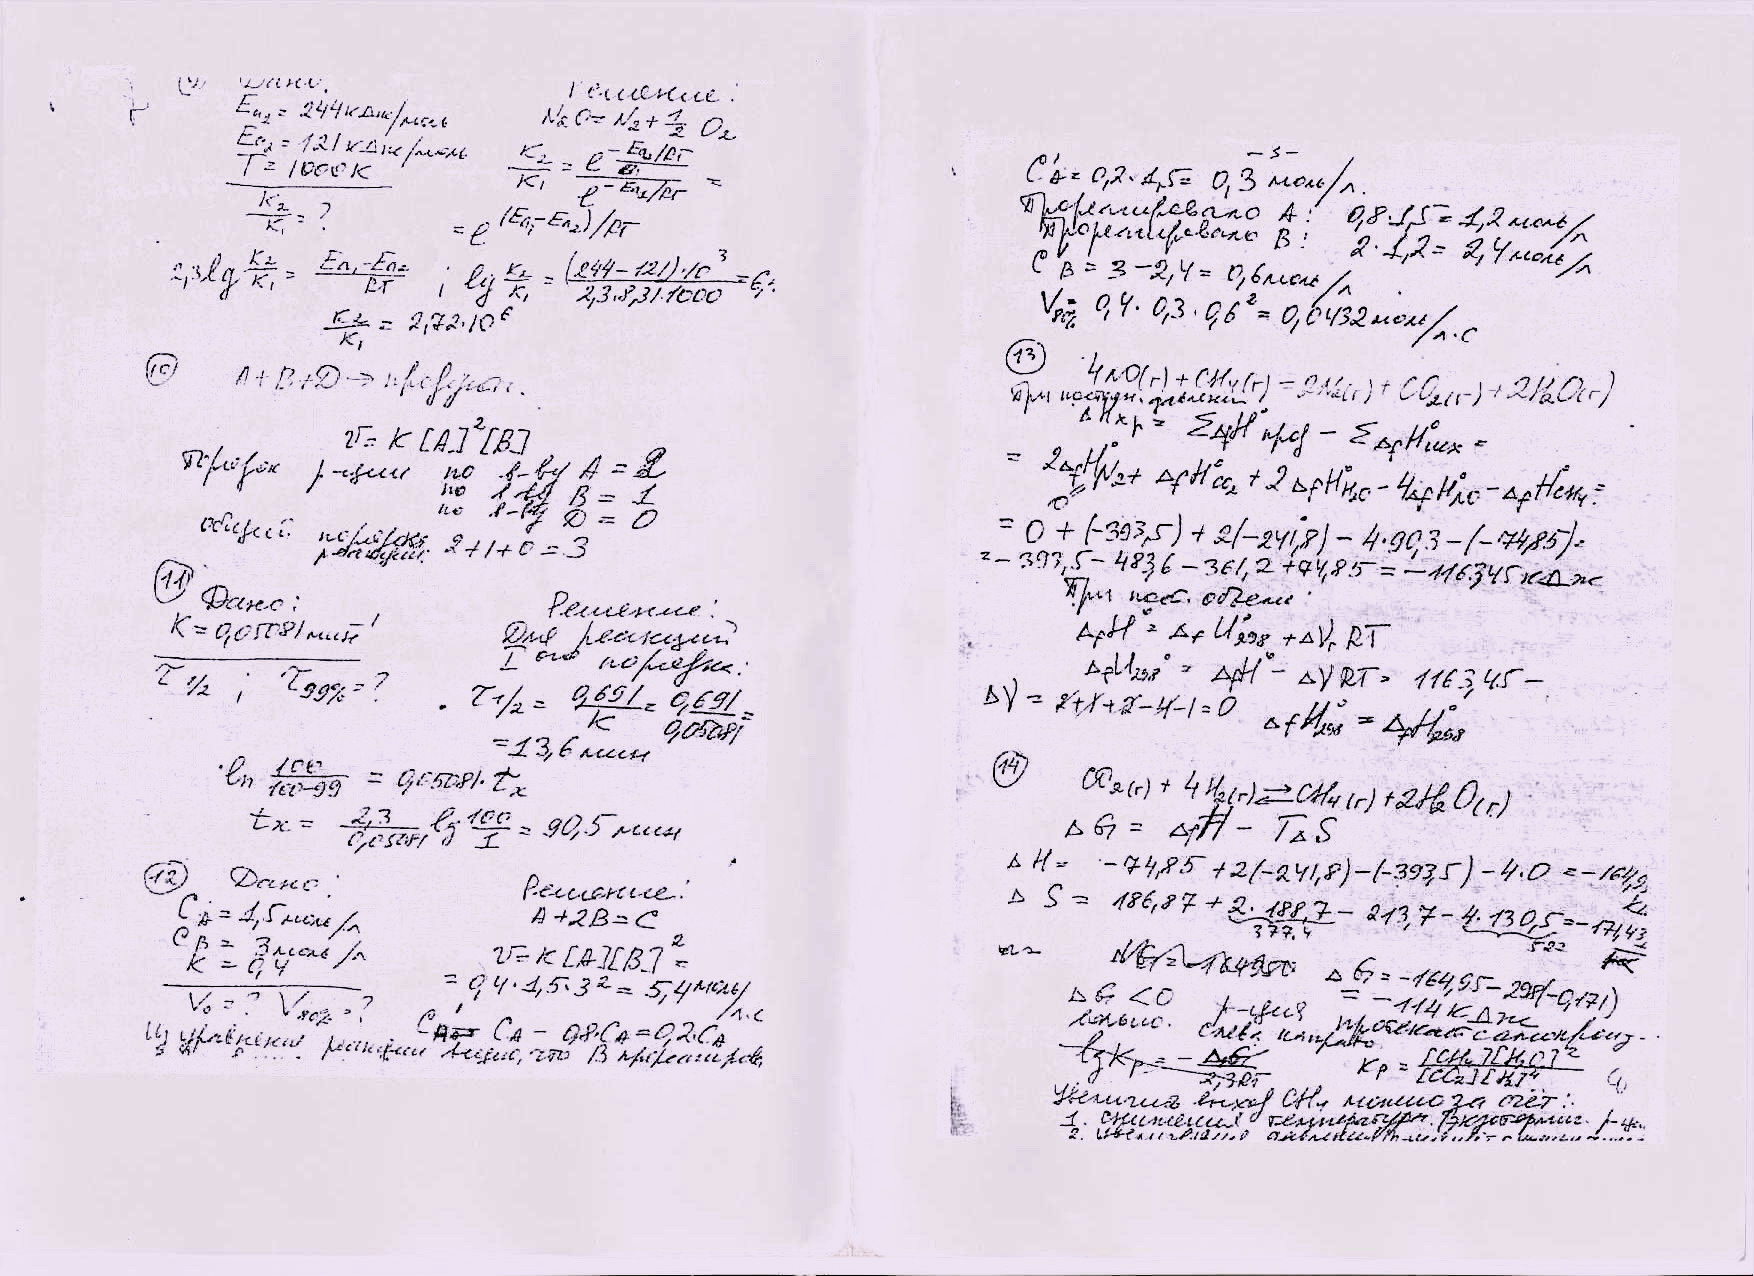 Дано:
Решение:
Eа₂ = 244 кДж/моль
N₂O = N₂ + 1/2 O₂
Eа₂ = 121 кДж/моль
T = 1000 K
K₂/K₁ = e^(-Eа₂/RT) / e^(-Eа₁/RT) =
K₂/K₁ = ?
= e^((Eа₁-Eа₂)/RT)
2,3lg K₂/K₁ = (Eа₁-Eа₂)/RT ; lg K₂/K₁ = (244-121)·10³/(2,3·8,31·1000) = 6,
K₂/K₁ = 2,72·10⁶
10
A + B + D → продукт.
v = K [A]² [B]
Порядок р-ции по в-ву A = 2
по в-ву B = 1
по в-ву D = 0
общий порядок реакции: 2+1+0 = 3
11
Дано:
K = 0,05081 мин⁻¹
τ 1/2 ; τ 99% = ?
Решение:
Для реакций
I ого порядка:
τ 1/2 = 0,691/K = 0,691/0,05081 =
= 13,6 мин
ln 100/(100-99) = 0,05081· tx
tx = 2,3/0,05081 lg 100/1 = 90,5 мин
12
Дано:
Решение:
C A = 1,5 моль/л
A + 2B = C
C B = 3 моль/л
v = K [A][B]² =
K = 0,4
= 0,4·1,5·3² = 5,4 моль/л.с
V₀ = ? V80% = ?
C'A = CA - 0,8·CA = 0,2·CA
Из уравнения реакции видно, что B прореагирова
-3-
C'A = 0,2·1,5 = 0,3 моль/л.
Прореагировало A: 0,8·1,5 = 1,2 моль/л
Прореагировало B: 2·1,2 = 2,4 моль/л
C B = 3 - 2,4 = 0,6 моль/л
V80% = 0,4· 0,3· 0,6² = 0,0432 моль/л·с
13
4NO(г) + CH₄(г) = 2N₂(г) + CO₂(г) + 2H₂O(г)
При постоян. давлении
ΔHхр = ΣΔfH° прод - ΣΔfH° исх =
= 2ΔfH°N₂ + ΔfH°CO₂ + 2ΔfH°H₂O - 4ΔfH°NO - ΔfH°CH₄ =
0
= 0 + (-393,5) + 2(-241,8) - 4·90,3 - (-74,85) =
= -393,5 - 483,6 - 361,2 + 74,85 = -1163,45 кДж
При пост. объеме:
ΔfH° = ΔfU°298 + ΔVrRT
ΔfU298° = ΔfH° - ΔVRT = 1163,45 -
ΔV = 2+1+2-4-1 = 0 ΔfU298° = ΔfH°298
14
CO₂(г) + 4H₂(г) ⇄ CH₄(г) + 2H₂O(г)
ΔG = ΔfH - TΔS
ΔH = -74,85 + 2(-241,8) - (-393,5) - 4·0 = -164,95
ΔS = 186,87 + 2·188,7 - 213,7 - 4·130,5 = -171,43
377,4
522
ΔG = -164950
ΔG = -164,95 - 298(-0,171)
= -114 кДж
ΔG < 0 р-ция протекает самопроиз-
вольно. слева направо
lgKp = - ΔG/2,3RT
Kp = [CH₄][H₂O]²/[CO₂][H₂]⁴
Увеличить выход CH₄ можно за счет:
1. снижения температуры. Экзотермич. р-ция
2. увеличение давления